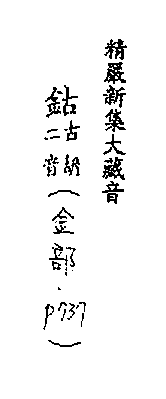 精嚴新集大藏音
鈷古胡二音（金部．p737）